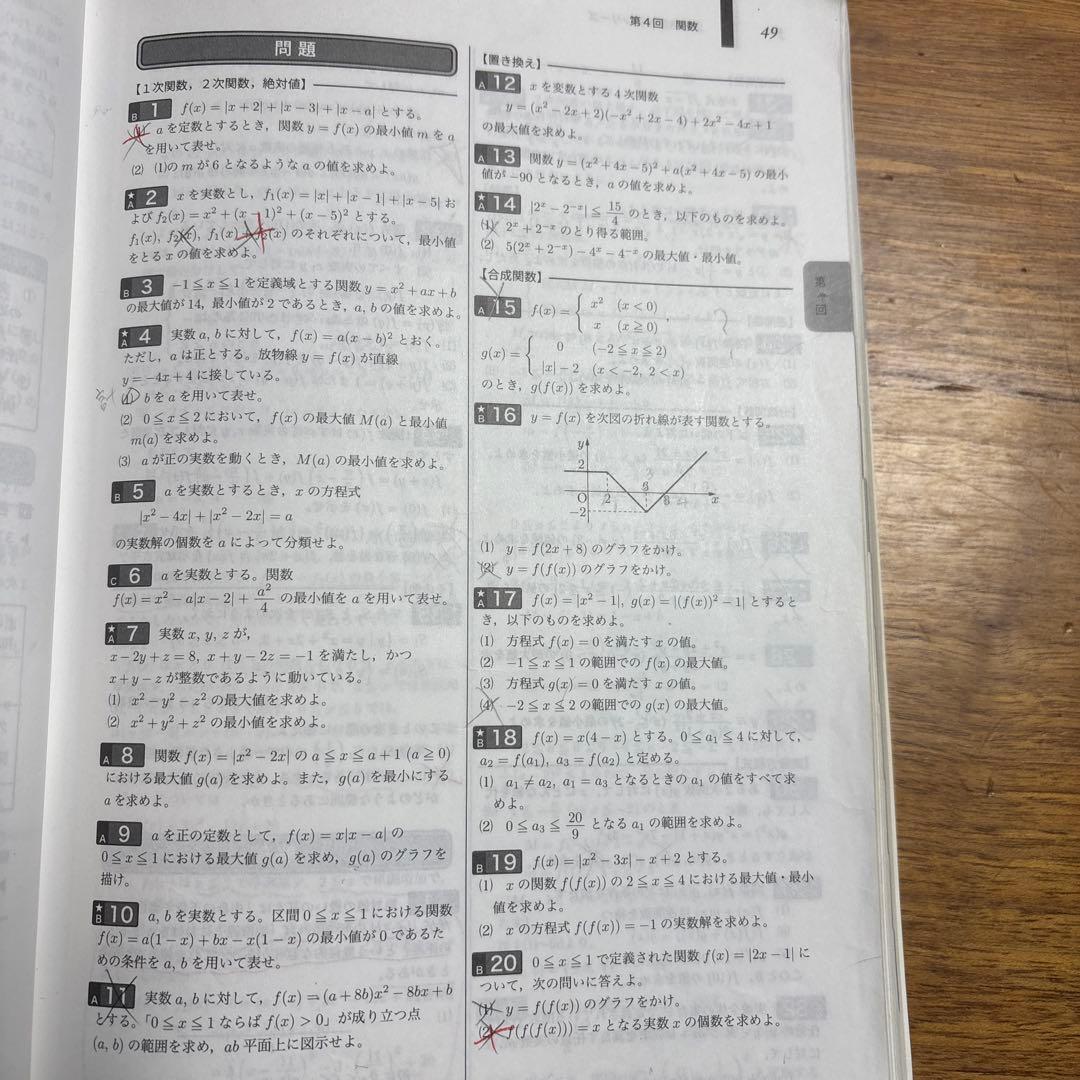 第4回 関数
49
問題
【1次関数，2次関数，絶対値】
B 1 f(x)=|x+2|+|x-3|+|x-a| とする。
a を定数とするとき，関数 y=f(x) の最小値 m を a
を用いて表せ。
(2) (1)の m が 6 となるような a の値を求めよ。
★A 2 x を実数とし，f₁(x)=|x|+|x-1|+|x-5| お
よび f₂(x)=x²+(x-1)²+(x-5)² とする。
f₁(x), f₂(x), f₁(x) f₂(x) のそれぞれについて，最小値
をとる x の値を求めよ。
B 3 -1≦x≦1 を定義域とする関数 y=x²+ax+b
の最大値が 14，最小値が 2 であるとき，a, b の値を求めよ。
★A 4 実数 a, b に対して，f(x)=a(x-b)² とおく。
ただし，a は正とする。放物線 y=f(x) が直線
y=-4x+4 に接している。
(1) b を a を用いて表せ。
(2) 0≦x≦2 において，f(x) の最大値 M(a) と最小値
m(a) を求めよ。
(3) a が正の実数を動くとき，M(a) の最小値を求めよ。
B 5 a を実数とするとき，x の方程式
|x²-4x|+|x²-2x|=a
の実数解の個数を a によって分類せよ。
C 6 a を実数とする。関数
f(x)=x²-a|x-2|+a²/4 の最小値を a を用いて表せ。
★A 7 実数 x, y, z が，
x-2y+z=8, x+y-2z=-1 を満たし，かつ
x+y-z が整数であるように動いている。
(1) x²-y²-z² の最大値を求めよ。
(2) x²+y²+z² の最小値を求めよ。
A 8 関数 f(x)=|x²-2x| の a≦x≦a+1 (a≧0)
における最大値 g(a) を求めよ。また，g(a) を最小にする
a を求めよ。
A 9 a を正の定数として，f(x)=x|x-a| の
0≦x≦1 における最大値 g(a) を求め，g(a) のグラフを
描け。
★B 10 a, b を実数とする。区間 0≦x≦1 における関数
f(x)=a(1-x)+bx-x(1-x) の最小値が 0 であるた
めの条件を a, b を用いて表せ。
A 11 実数 a, b に対して，f(x)=(a+8b)x²-8bx+b
とする。「0≦x≦1 ならば f(x)>0」が成り立つ点
(a, b) の範囲を求め，ab 平面上に図示せよ。
【置き換え】
A 12 x を変数とする 4 次関数
y=(x²-2x+2)(-x²+2x-4)+2x²-4x+1
の最大値を求めよ。
A 13 関数 y=(x²+4x-5)²+a(x²+4x-5) の最小
値が -90 となるとき，a の値を求めよ。
★A 14 |2ˣ-2⁻ˣ|≦15/4 のとき，以下のものを求めよ。
(1) 2ˣ+2⁻ˣ のとり得る範囲。
(2) 5(2ˣ+2⁻ˣ)-4ˣ-4⁻ˣ の最大値・最小値。
【合成関数】
A 15 f(x)={ x² (x<0)
x (x≧0) ,
g(x)={ 0 (-2≦x≦2)
|x|-2 (x<-2, 2<x)
のとき，g(f(x)) を求めよ。
★B 16 y=f(x) を次図の折れ線が表す関数とする。
y
2
O 2 6 8 x
-2
(1) y=f(2x+8) のグラフをかけ。
(2) y=f(f(x)) のグラフをかけ。
★A 17 f(x)=|x²-1|, g(x)=|(f(x))²-1| とすると
き，以下のものを求めよ。
(1) 方程式 f(x)=0 を満たす x の値。
(2) -1≦x≦1 の範囲での f(x) の最大値。
(3) 方程式 g(x)=0 を満たす x の値。
(4) -2≦x≦2 の範囲での g(x) の最大値。
★B 18 f(x)=x(4-x) とする。0≦a₁≦4 に対して，
a₂=f(a₁), a₃=f(a₂) と定める。
(1) a₁≠a₂, a₁=a₃ となるときの a₁ の値をすべて求
めよ。
(2) 0≦a₃≦20/9 となる a₁ の範囲を求めよ。
B 19 f(x)=|x²-3x|-x+2 とする。
(1) x の関数 f(f(x)) の 2≦x≦4 における最大値・最小
値を求めよ。
(2) x の方程式 f(f(x))=-1 の実数解を求めよ。
B 20 0≦x≦1 で定義された関数 f(x)=|2x-1| に
ついて，次の問いに答えよ。
(1) y=f(f(x)) のグラフをかけ。
(2) f(f(f(x)))=x となる実数 x の個数を求めよ。
第4回